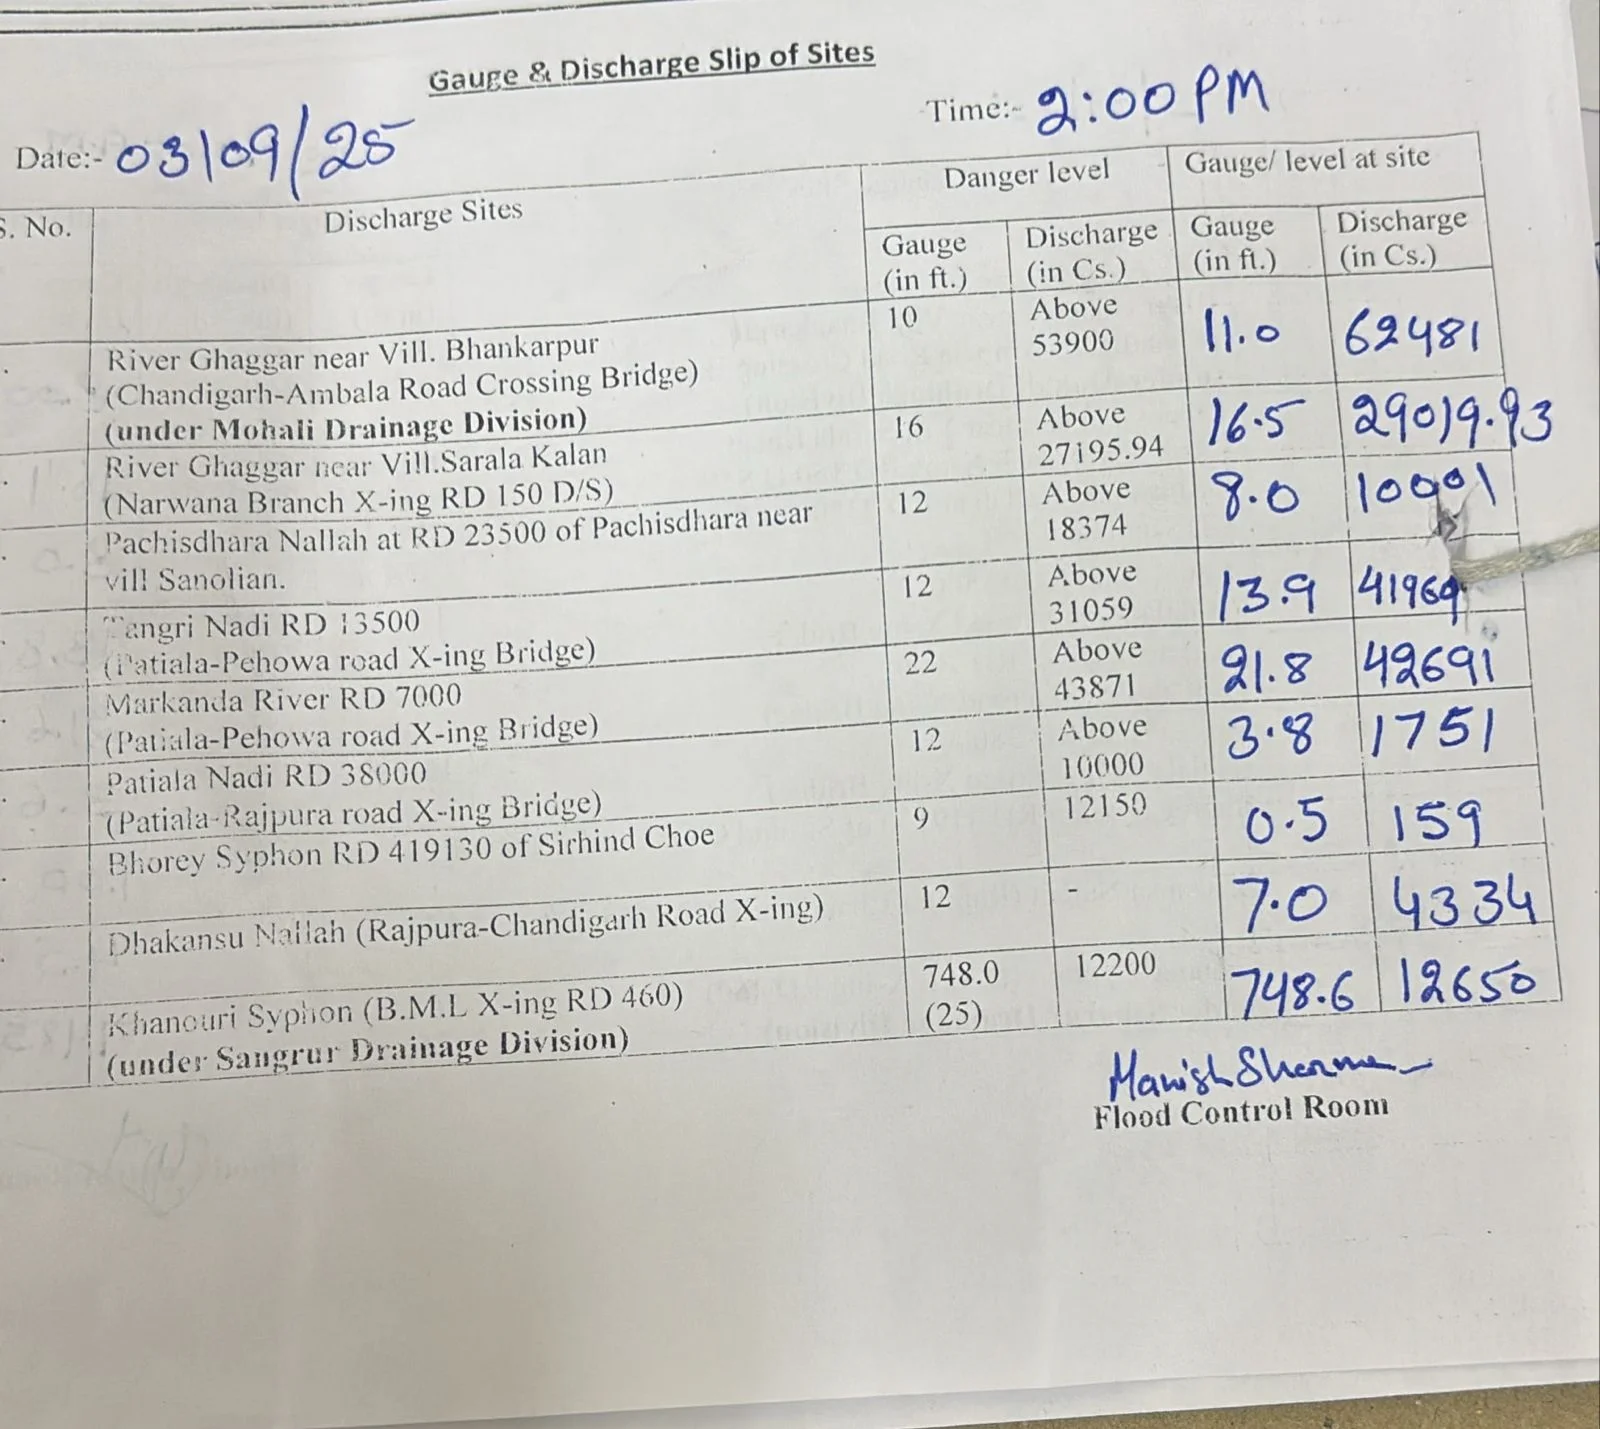 Gauge & Discharge Slip of Sites
Date:- 03/09/25 Time:- 2:00 PM
S. No. Discharge Sites Danger level Gauge/ level at site
Gauge (in ft.) Discharge (in Cs.) Gauge (in ft.) Discharge (in Cs.)
River Ghaggar near Vill. Bhankarpur 10 Above 53900 11.0 62481
(Chandigarh-Ambala Road Crossing Bridge)
(under Mohali Drainage Division)
River Ghaggar near Vill.Sarala Kalan 16 Above 27195.94 16.5 29019.93
(Narwana Branch X-ing RD 150 D/S)
Pachisdhara Nallah at RD 23500 of Pachisdhara near 12 Above 18374 8.0 10001
vill Sanolian.
Tangri Nadi RD 13500 12 Above 31059 13.9 41969
(Patiala-Pehowa road X-ing Bridge)
Markanda River RD 7000 22 Above 43871 21.8 42691
(Patiala-Pehowa road X-ing Bridge)
Patiala Nadi RD 38000 12 Above 10000 3.8 1751
(Patiala-Rajpura road X-ing Bridge)
Bhorey Syphon RD 419130 of Sirhind Choe 9 12150 0.5 159
Dhakansu Nallah (Rajpura-Chandigarh Road X-ing) 12 - 7.0 4334
Khanouri Syphon (B.M.L X-ing RD 460) 748.0 (25) 12200 748.6 12650
(under Sangrur Drainage Division)
Manish Sharma
Flood Control Room